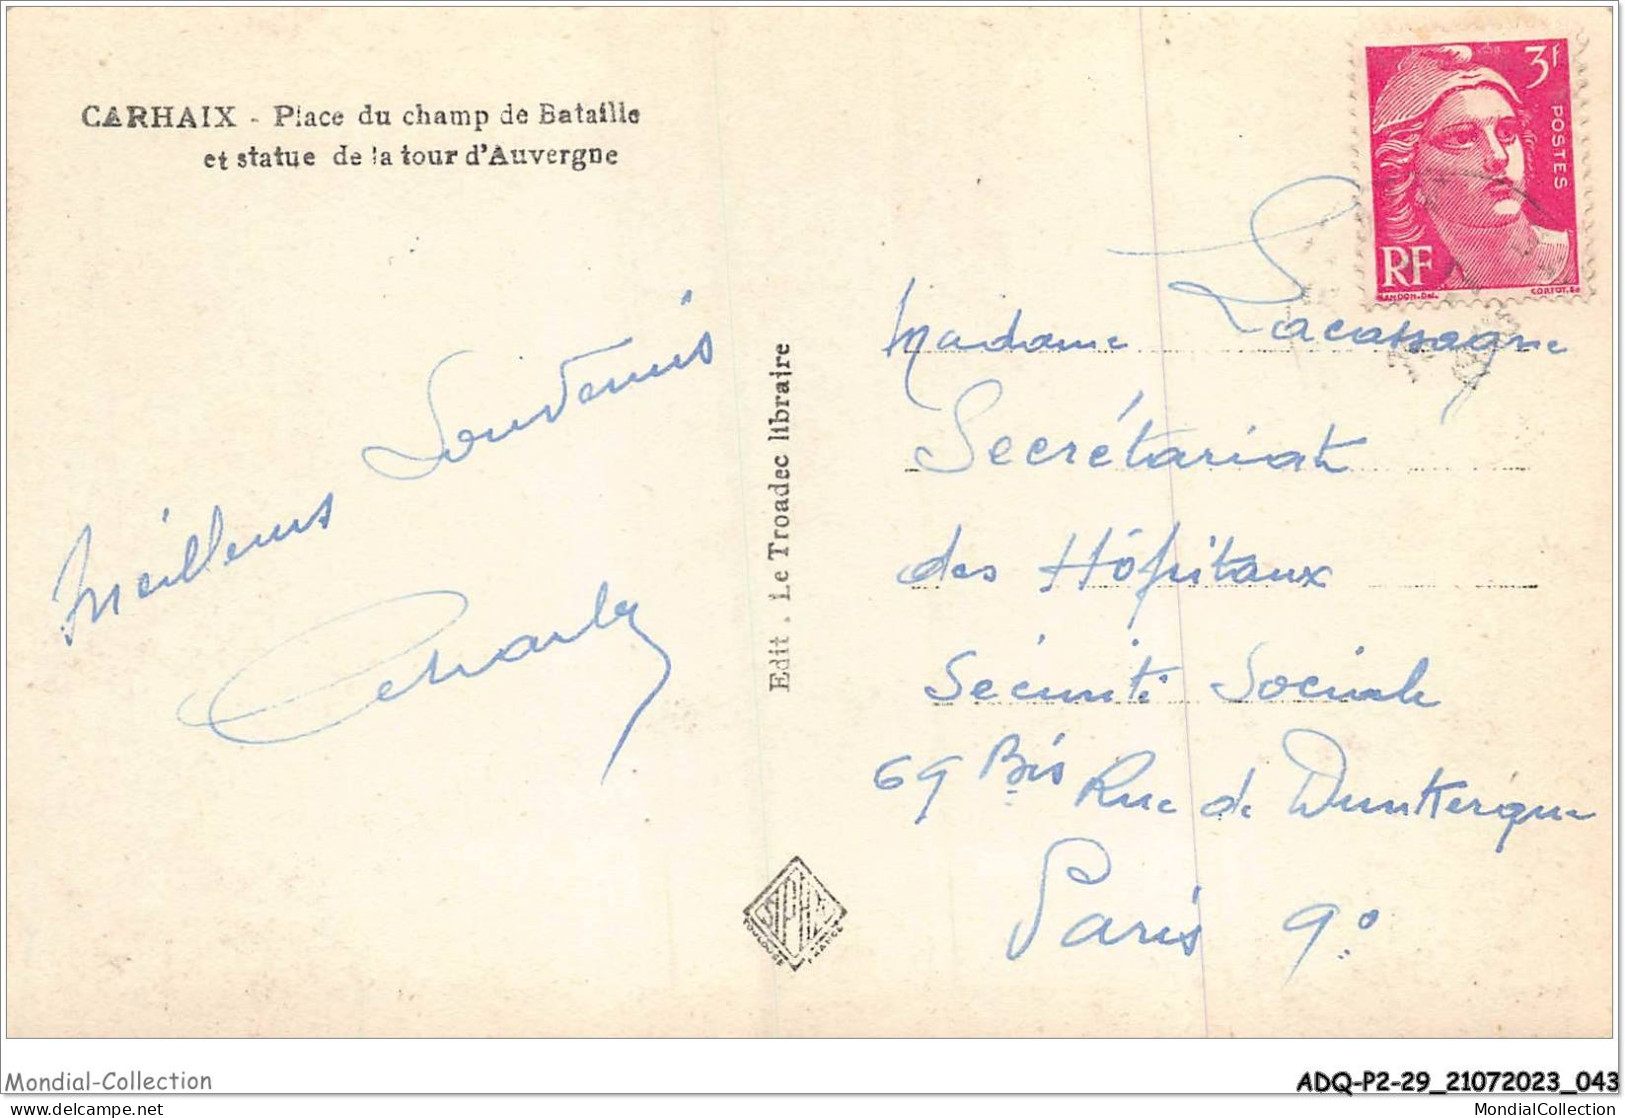 CARHAIX - Place du champ de Bataille
et statue de la tour d'Auvergne
Meilleurs Souvenirs
Charly
Edit. Le Troadec libraire
TOULOUSE FRANCE
3f
POSTES
RF
GANDON-DEL.
CORTOT.SC
Madame Lacassagne
Secrétariat
des Hôpitaux
Sécurité Sociale
69 Bis Rue de Dunkerque
Paris 9°
Mondial-Collection
ADQ-P2-29_21072023_043
delcampe.net
MondialCollection